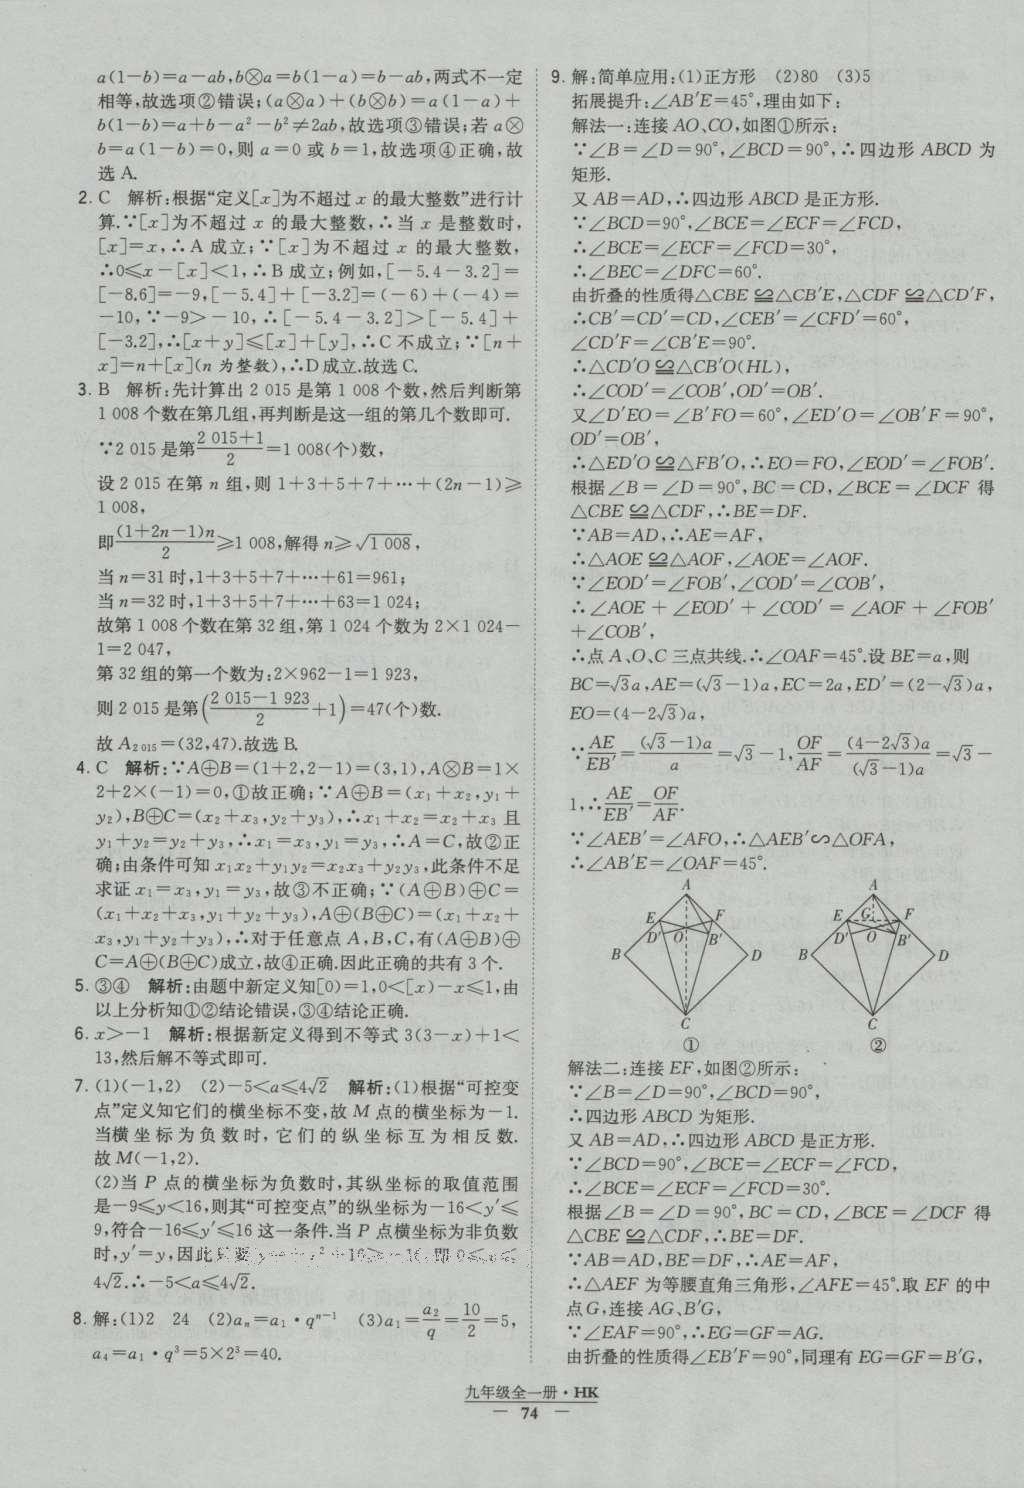 a(1-b)=a-ab,b⊗a=b(1-a)=b-ab,两式不一定
相等,故选项②错误;(a⊗a)+(b⊗b)=a(1-a)+
b(1-b)=a+b-a²-b²≠2ab,故选项③错误;若 a⊗
b=a(1-b)=0,则 a=0 或 b=1,故选项④正确,故
选 A.
2. C 解析:根据“定义[x]为不超过 x 的最大整数”进行计
算.∵[x]为不超过 x 的最大整数,∴当 x 是整数时,
[x]=x,∴A 成立;∵[x]为不超过 x 的最大整数,
∴0≤x-[x]<1,∴B 成立;例如,[-5.4-3.2]=
[-8.6]=-9,[-5.4]+[-3.2]=(-6)+(-4)=
-10,∵-9>-10,∴[-5.4-3.2]>[-5.4]+
[-3.2],∴[x+y]≤[x]+[y],∴C 不成立;∵[n+
x]=n+[x](n 为整数),∴D成立.故选 C.
3. B 解析:先计算出 2 015 是第 1 008 个数,然后判断第
1 008 个数在第几组,再判断是这一组的第几个数即可.
∵2 015 是第(2 015+1)/2=1 008(个)数,
设 2 015 在第 n 组,则 1+3+5+7+…+(2n-1)≥
1 008,
即(1+2n-1)n/2≥1 008,解得 n≥√1 008,
当 n=31 时,1+3+5+7+…+61=961;
当 n=32 时,1+3+5+7+…+63=1 024;
故第 1 008 个数在第 32 组,第 1 024 个数为 2×1 024-
1=2 047,
第 32 组的第一个数为:2×962-1=1 923,
则 2 015 是第((2 015-1 923)/2+1)=47(个)数.
故 A₂ ₀₁₅=(32,47).故选 B.
4. C 解析:∵A⊕B=(1+2,2-1)=(3,1),A⊗B=1×
2+2×(-1)=0,①故正确;∵A⊕B=(x₁+x₂,y₁+
y₂),B⊕C=(x₂+x₃,y₂+y₃),∴x₁+x₂=x₂+x₃ 且
y₁+y₂=y₂+y₃,∴x₁=x₃,y₁=y₃,∴A=C,故②正
确;由条件可知 x₁x₂+y₁y₂=x₂x₃+y₂y₃,此条件不足
求证 x₁=x₃,y₁=y₃,故③不正确;∵(A⊕B)⊕C=
(x₁+x₂+x₃,y₁+y₂+y₃),A⊕(B⊕C)=(x₁+x₂+
x₃,y₁+y₂+y₃),∴对于任意点 A,B,C,有(A⊕B)⊕
C=A⊕(B⊕C)成立,故④正确.因此正确的共有 3 个.
5. ③④ 解析:由题中新定义知[0)=1,0<[x)-x≤1,由
以上分析知①②结论错误,③④结论正确.
6. x>-1 解析:根据新定义得到不等式 3(3-x)+1<
13,然后解不等式即可.
7. (1)(-1,2) (2)-5<a≤4√2 解析:(1)根据“可控变
点”定义知它们的横坐标不变,故 M 点的横坐标为-1.
当横坐标为负数时,它们的纵坐标互为相反数.
故M(-1,2).
(2)当 P 点的横坐标为负数时,其纵坐标的取值范围
是-9≤y<16,则其“可控变点”的纵坐标为-16<y′≤
9,符合-16≤y′≤16 这一条件.当 P 点横坐标为非负数
时,y′=y,因此只要
4√2.∴-5<a≤4√2.
8. 解:(1)2 24 (2)aₙ=a₁·qⁿ⁻¹ (3)a₁=a₂/q=10/2=5,
a₄=a₁·q³=5×2³=40.
9. 解:简单应用:(1)正方形 (2)80 (3)5
拓展提升:∠AB′E=45°,理由如下:
解法一:连接 AO、CO,如图①所示:
∵∠B=∠D=90°,∠BCD=90°,∴四边形 ABCD 为
矩形.
又 AB=AD,∴四边形 ABCD 是正方形.
∵∠BCD=90°,∠BCE=∠ECF=∠FCD,
∴∠BCE=∠ECF=∠FCD=30°,
∴∠BEC=∠DFC=60°.
由折叠的性质得△CBE≌△CB′E,△CDF≌△CD′F,
∴CB′=CD′=CD,∠CEB′=∠CFD′=60°,
∠CD′F=∠CB′E=90°.
∴△CD′O≌△CB′O(HL),
∴∠COD′=∠COB′,OD′=OB′.
又∠D′EO=∠B′FO=60°,∠ED′O=∠OB′F=90°,
OD′=OB′,
∴△ED′O≌△FB′O,∴EO=FO,∠EOD′=∠FOB′.
根据∠B=∠D=90°,BC=CD,∠BCE=∠DCF 得
△CBE≌△CDF,∴BE=DF.
∵AB=AD,∴AE=AF,
∴△AOE≌△AOF,∠AOE=∠AOF.
∵∠EOD′=∠FOB′,∠COD′=∠COB′,
∴∠AOE+∠EOD′+∠COD′=∠AOF+∠FOB′
+∠COB′,
∴点 A、O、C 三点共线.∴∠OAF=45°.设 BE=a,则
BC=√3a,AE=(√3-1)a,EC=2a,ED′=(2-√3)a,
EO=(4-2√3)a,
∵AE/EB′=(√3-1)a/a=√3-1,OF/AF=(4-2√3)a/(√3-1)a=√3-
1,∴AE/EB′=OF/AF.
∵∠AEB′=∠AFO,∴△AEB′∽△OFA,
∴∠AB′E=∠OAF=45°.
A
E F
D′ O B′
B D
C
①
A
E G F
D′ O B′
B D
C
②
解法二:连接 EF,如图②所示:
∵∠B=∠D=90°,∠BCD=90°,
∴四边形 ABCD 为矩形.
又 AB=AD,∴四边形 ABCD 是正方形.
∵∠BCD=90°,∠BCE=∠ECF=∠FCD,
∴∠BCE=∠ECF=∠FCD=30°.
根据∠B=∠D=90°,BC=CD,∠BCE=∠DCF 得
△CBE≌△CDF,∴BE=DF.
∵AB=AD,BE=DF,∴AE=AF,
∴△AEF 为等腰直角三角形,∠AFE=45°.取 EF 的中
点G,连接 AG、B′G,
∵∠EAF=90°,∴EG=GF=AG.
由折叠的性质得∠EB′F=90°,同理有 EG=GF=B′G,
九年级全一册·HK
— 74 —